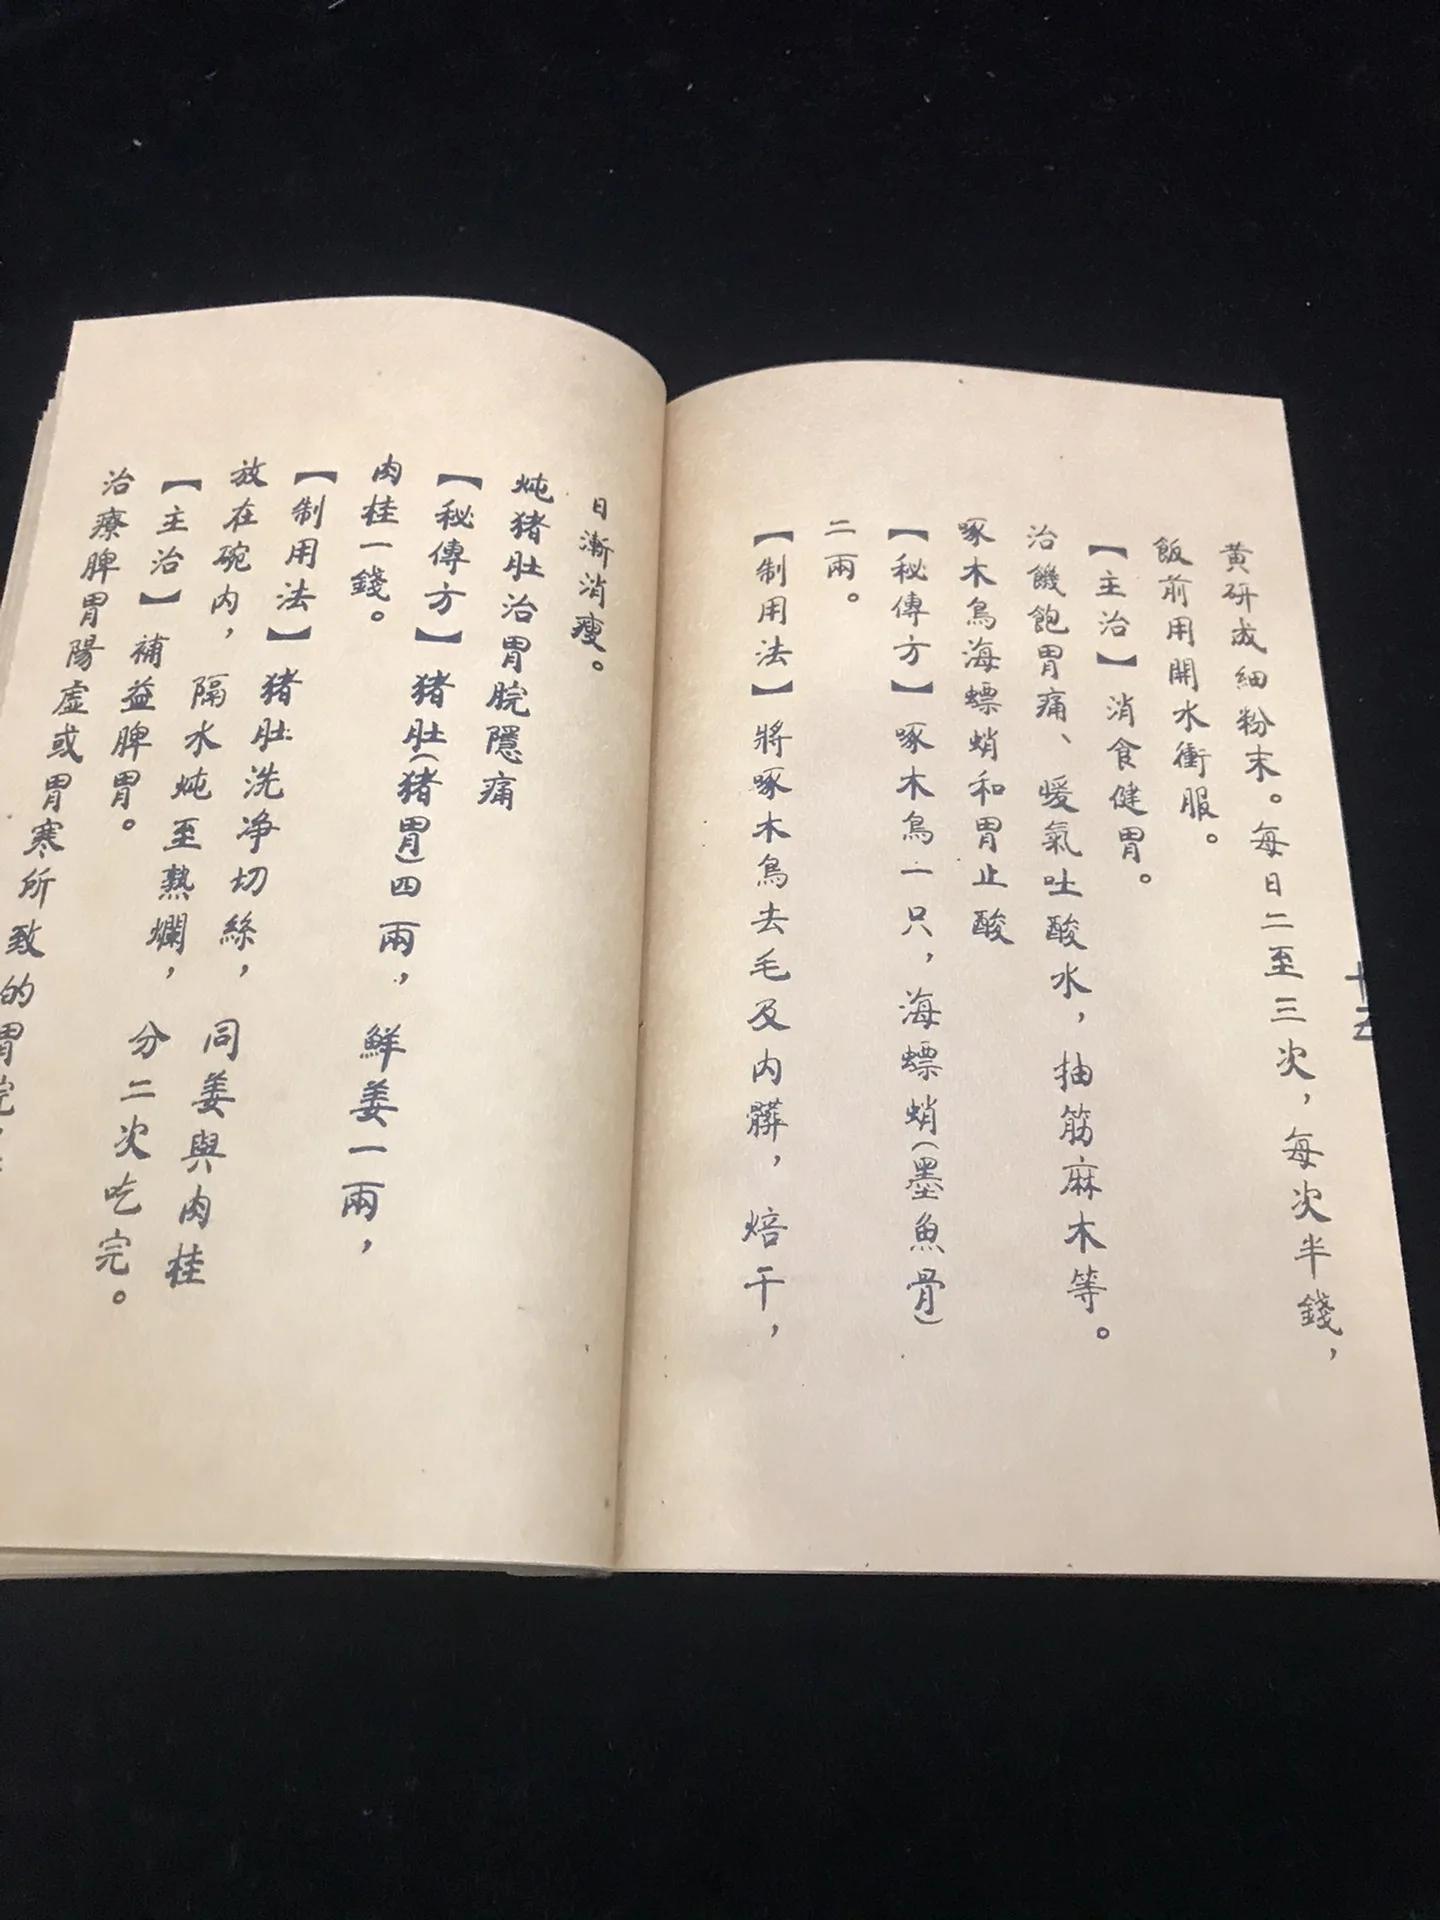 黄研成細粉末。每日二至三次，每次半錢，
飯前用開水衝服。
【主治】消食健胃。
治饑飽胃痛、暖氣吐酸水，抽筋麻木等。
啄木鳥海螵蛸和胃止酸
【秘傳方】啄木鳥一只，海螵蛸(墨魚骨)
二兩。
【制用法】將啄木鳥去毛及内臟，焙干，
日漸消瘦。
炖猪肚治胃脘隱痛
【秘傳方】猪肚(猪胃)四兩，鮮姜一兩，
肉桂一錢。
【制用法】猪肚洗净切絲，同姜與肉桂
放在碗内，隔水炖至熟爛，分二次吃完。
【主治】補益脾胃。
治療脾胃陽虚或胃寒所致的胃脘